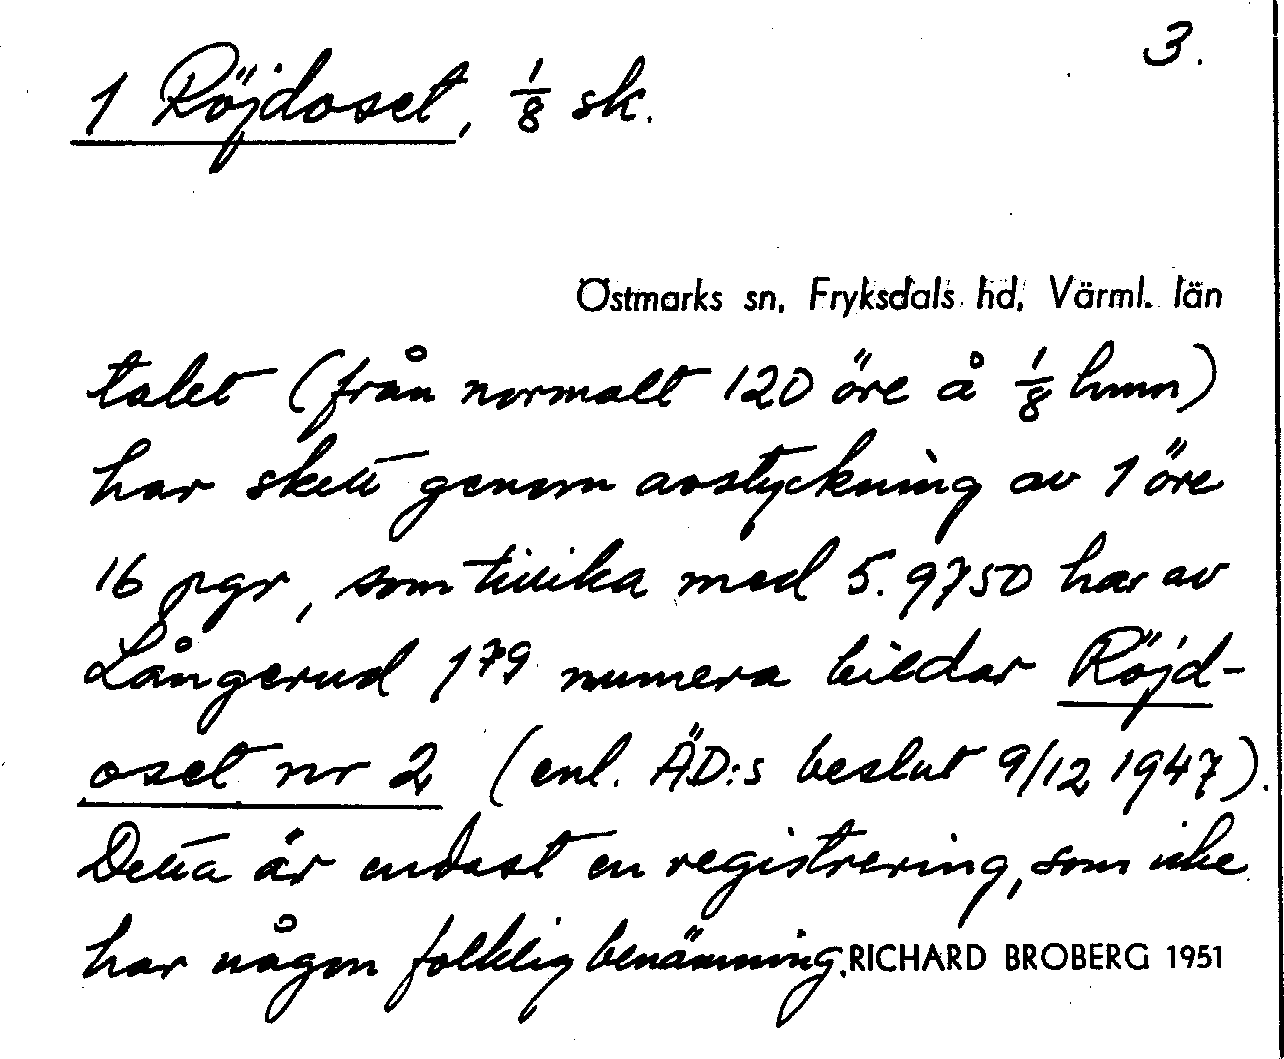 3.
1 Röjdoset, 1/8 sk.
Östmarks sn, Fryksdals hd, Värml. län
talet (från normalt 120 öre å 1/8 hmn)
har skett genom avstyckning av 1 öre
16 pgr, som tillika med 5.9750 har av
Långerud 1⁷⁹ numera bildar Röjd-
oset nr 2 (enl. ÄD:s beslut 9/12 1947).
Detta är endast en registrering, som icke
har någon folklig benämning. RICHARD BROBERG 1951